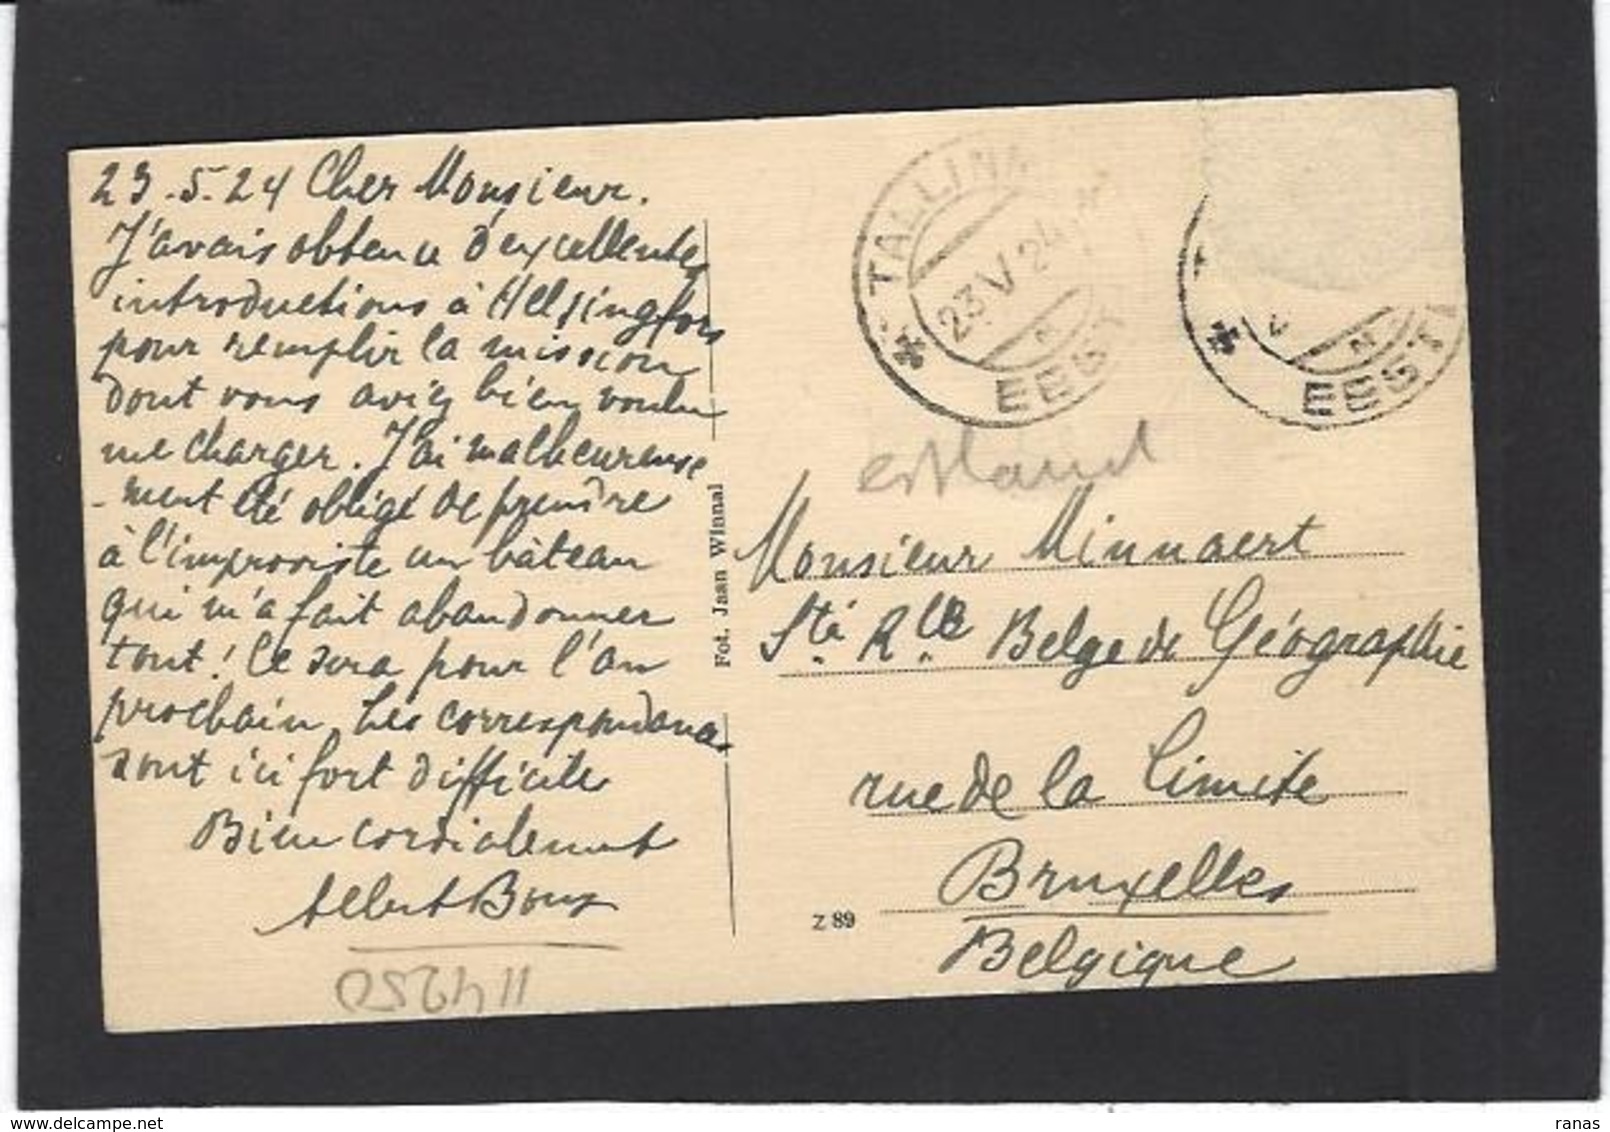 23.5.24 Cher Monsieur.
J'avais obtenu d'excellentes
introductions à Helsingfors
pour remplir la mission
dont vous aviez bien voulu
me charger. J'ai malheureuse
-ment été obligé de prendre
à l'improviste un bâteau
qui m'a fait abandonner
tout! Ce sera pour l'an
prochain. Les correspondances
sont ici fort difficiles
Bien cordialement
Albert
11 4250
Fot. Jaan Winnal
TALLINN
23 V 24
EESTI
EESTI
estland
Monsieur Minnaert
Sté Rle Belge de Géographie
rue de la Limite
Bruxelles
Belgique
Z 89
ranas